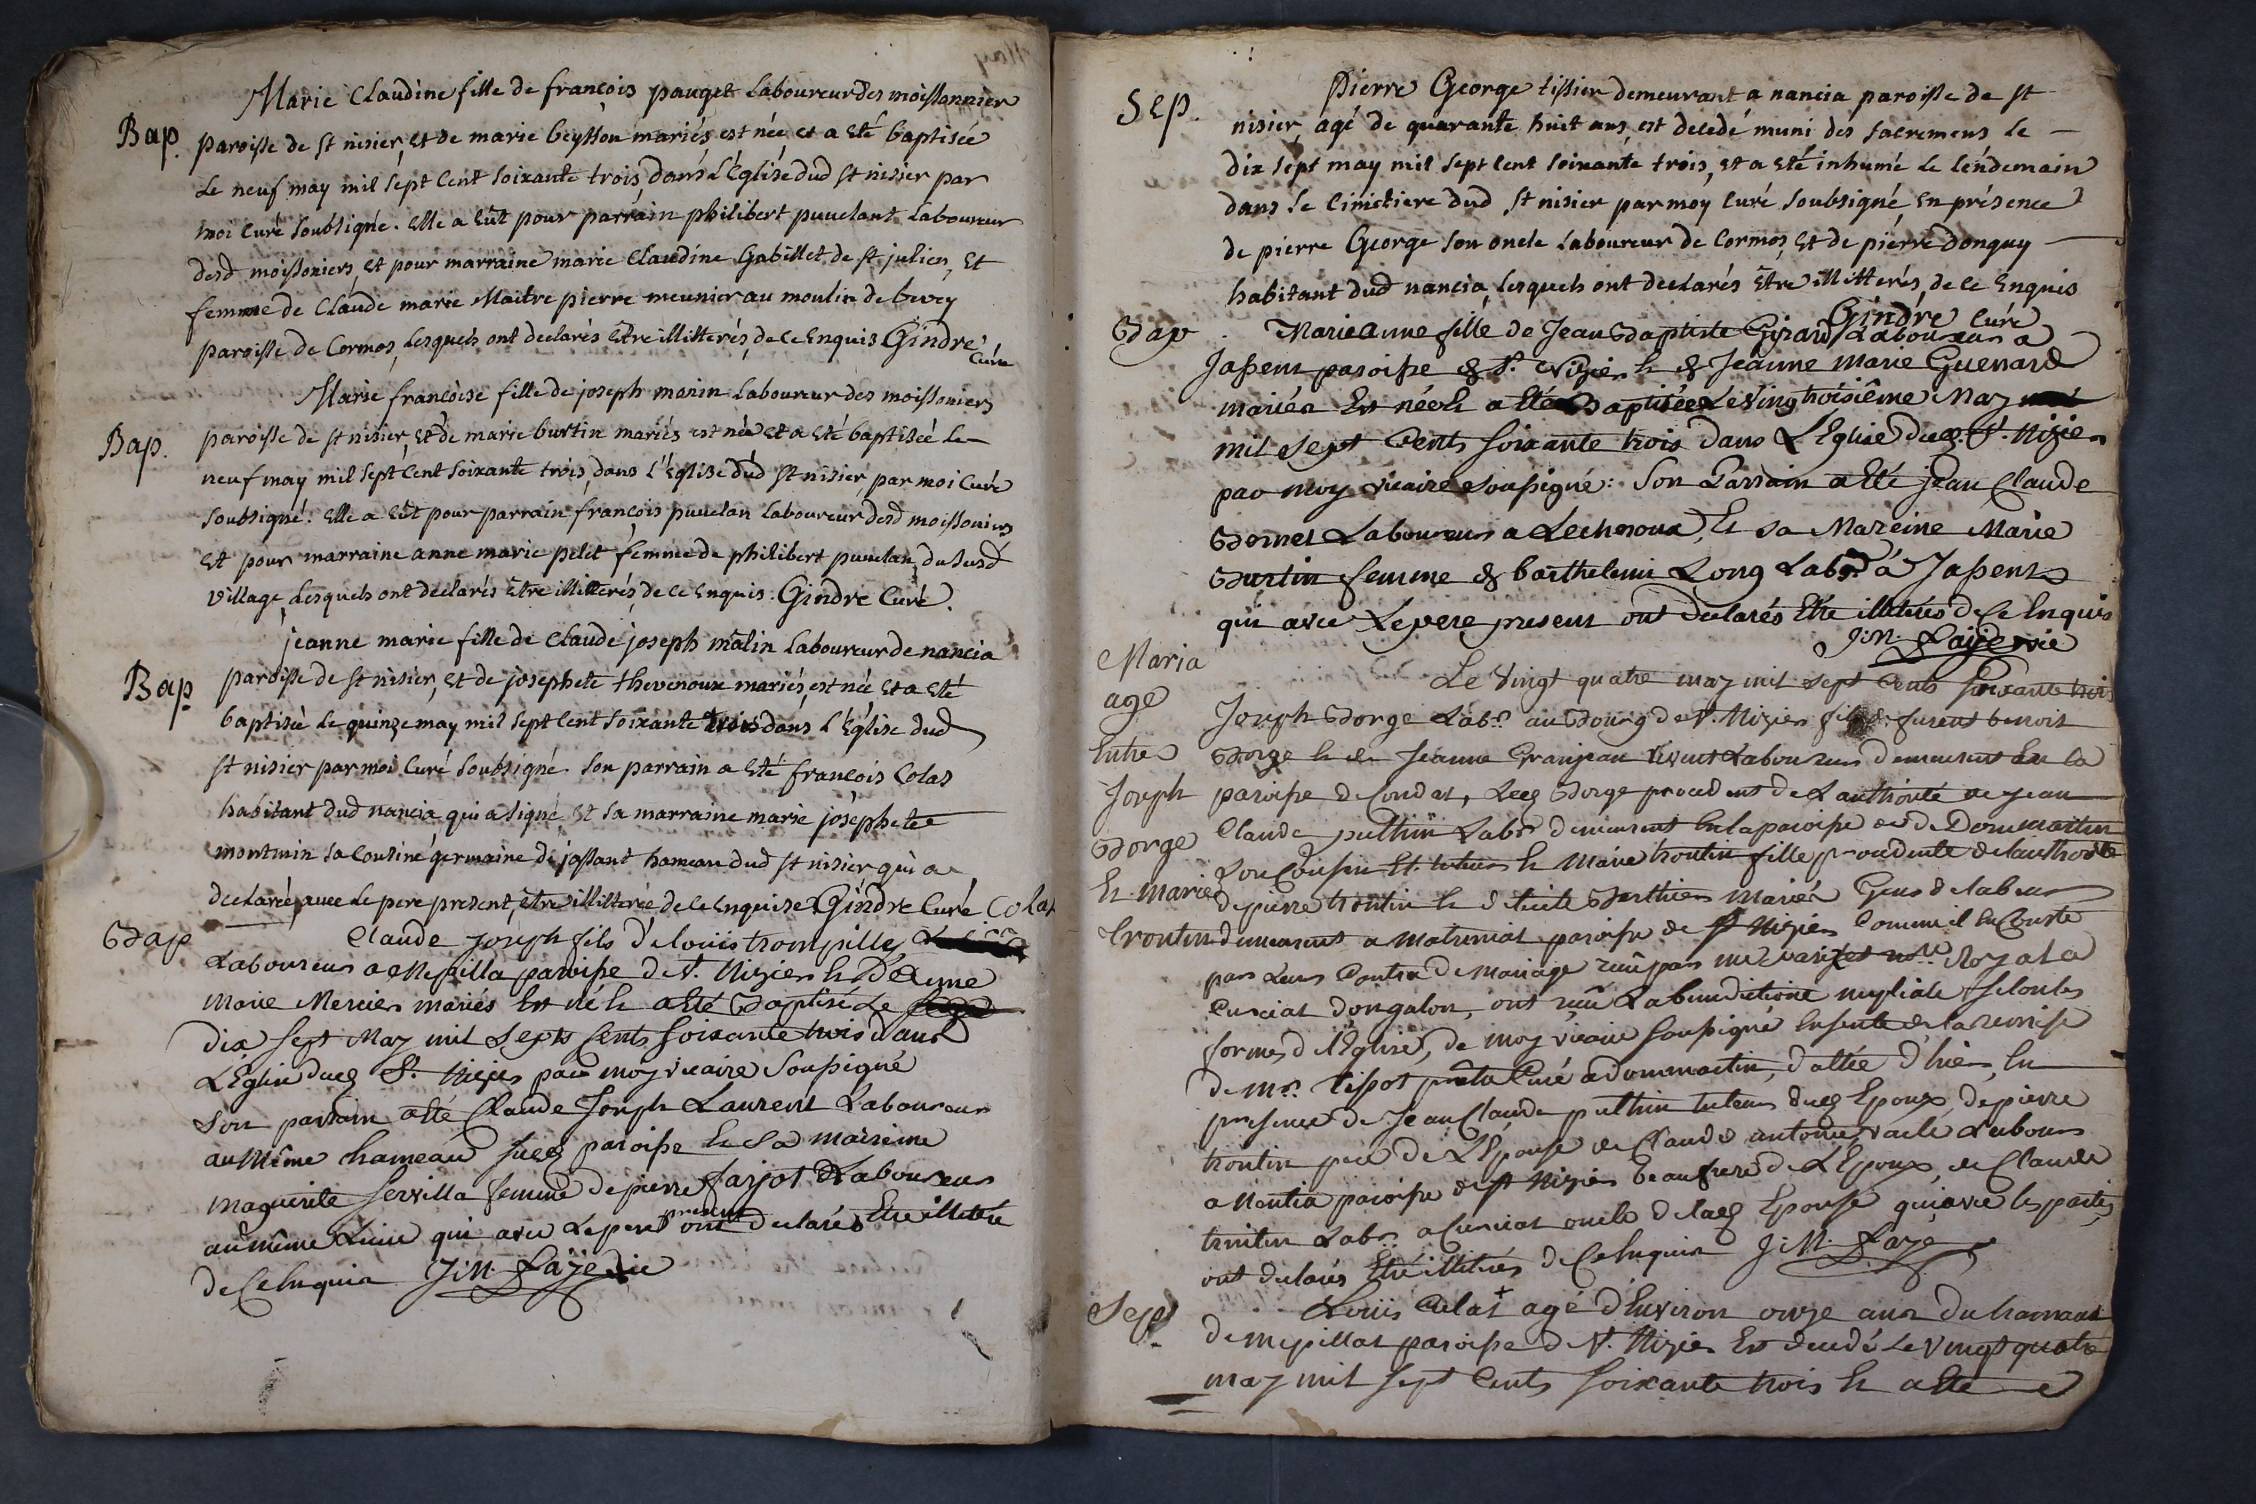 Marie Claudine fille de françois pauget Laboureur des moissonnier
Bap. paroisse de st nisier, et de marie beysson mariés est née, et a eté baptisée
Le neuf may mil sept cent soixante trois, dans l'Eglise dud st nisier par
moi curé soubsigné. elle a eüt pour parrain philibert puvelant Laboureur
desd moissoniers, et pour marraine marie Claudine Gabillet de st julien, et
femme de Claude marie Maitre pierre meunier au moulin de bevey
paroisse de Cormos, Lesquels ont declarés etre illitterés, de ce enquis Gindre
Curé
Marie françoise fille de joseph marin Laboureur des moissoniers
Bap. paroisse de st nisier, et de marie burtin mariés est née et a eté baptisée le
neuf may mil sept cent soixante trois, dans l'Eglise dud st nisier, par moi Curé
soubsigné. Elle a eüt pour parrain françois puvelan Laboureur desd moissoniers
et pour marraine anne marie petit femme de philibert puvelan, du susd
village, Lesquels ont déclarés etre illitterés, de ce enquis. Gindre Curé.
jeanne marie fille de Claude joseph malin Laboureur de nancia
Bap. paroisse de st nisier, et de josephete thevenoux mariés, est née et a eté
baptisée Le quinze may mil sept cent soixante trois dans l'Eglise dud
st nisier par moi Curé soubsigné. son parrain a eté françois Colas
habitant dud nancia, qui a signé, et sa marraine marie josephete
montmin sa cousine germaine de jassant hameau dud st nisier qui a
declarée, avec le pere present, etre illitterée, de ce enquise Gindre Curé Colas
Bap Claude joseph fils de Loüis trompille
Laboureur a Mepilla paroisse de St. Nizier &
Marie Mercier mariés est né & a eté Baptisé Le
dix sept May mil septs cents soixante trois dans
L'Eglise dud St. Nizier par moy vicaire soussigné
Son parrain a eté Claude Joseph Laurent Laboureur
au même hameau sud paroisse & sa maireine
Maguerite servilla femme de pierre farjot Laboureur
au même Lieu qui avec Le pere present ont declarés Etre illitéré
de ce Enquis J:M. Laÿe vic
Sep. Pierre George tissier demeurant a nancia paroisse de st
nisier agé de quarante huit ans, est decedé muni des sacremens le
dix sept may mil sept cent soixante trois, et a eté inhumé Le lendemain
dans Le cimetiere dud st nisier par moy Curé soubsigné, en présence
de pierre George son oncle Laboureur de Cormos, et de pierre donguy
habitant dud nancia, lesquels ont declarés etre illitterés, de ce enquis
Gindre Curé
Bap Marie anne fille de Jean Baptiste Girau Laboureur a
Jassent paroisse de St. Nizier & de Jeanne Marie Guenard
mariés Est née & a eté Baptisée Le vingtroisiême May
mil sept Cents soixante trois dans L'Eglise dud St. Nizier
par moy vicaire soussigné: son Parrain a eté jean Claude
Bornet Laboureur a Lechenoux, & sa Mareine Marie
Burtin femme de barthelemi Long Labr. à Jassent
qui avec Le pere present ont declarés Etre illitérés de Ce Enquis
J:M. Laÿe vic
Maria Le vingt quatre may mil sept Cents soixante trois
age Joseph Borge Labr. au Bourg de St. Nizier fils de furent benoit
Entre Borge & de Jeanne Granjean vivent Laboureurs demeurant En la
Joseph paroisse de Condat, Led Borge procedent de L'authorité de jean
Borge Claude puthin Labr demeurent En la paroisse de Dommartin
& marie son Cousin et tuteur & Marie trontin fille procedente de l'authorité
trontin de pierre trontin & de Berthier Mariés Gens de labeur
demeurent a Matrenat paroisse de St Nizier Comme il en Conste
par Leur Contra de Mariage reçû par me notre Royal a
Cuisiat dongalon, ont reçû La benediction nuptiale selon les
formes de l'Eglise, de moy vicaire soussigné Ensuite de la remise
de Mr. tissot pretre Curé a dommartin, dattée d'hier, En
presence de Jean Claude puthin tuteur dud Epoux, de pierre
trontin pere de L'Epouse de Claude antoine vacle Labour
a Nantia paroisse de St Nizier beaufrere de L'Epoux, de Claude
trontin Labr. a Cuisiat oncle de lad Epouse qui avec les parties
ont declarés Etre illitérés de Ce Enquis J:M. Laÿe
Sep. Loüis Culat agé d'Environ onze ans du hameau
de mepillat paroisse de St. Nizier Est decedé Le vingt quatre
may mil sept Cents soixante trois & a eté